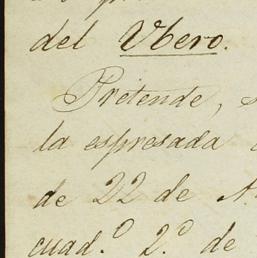 del Vbero.
Pretende,
la espresada
de 22 de
cuad.º 2.º de